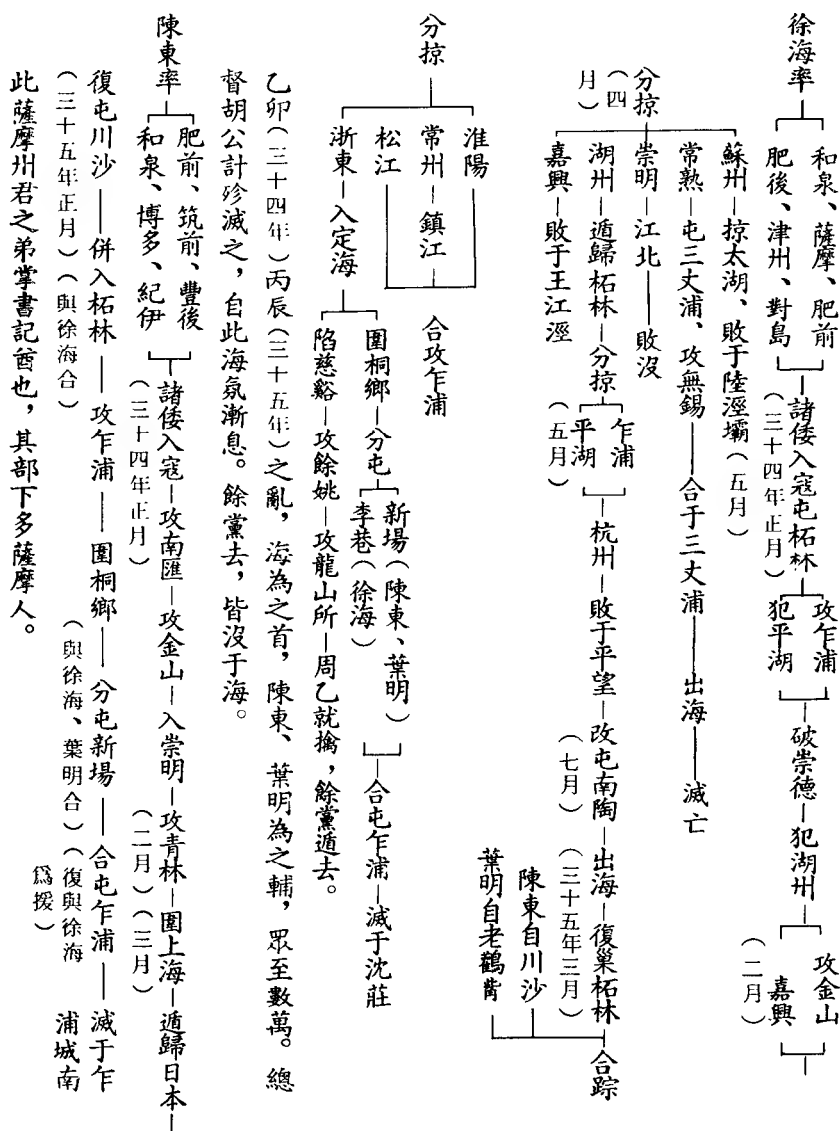 徐海率
和泉、薩摩、肥前
肥後、津州、對島
諸倭入寇屯柘林
(三十四年正月)
攻乍浦
犯平湖
破崇德—犯湖州
攻金山
嘉興
(二月)
分掠
(四月)
蘇州—掠太湖、敗于陸涇壩(五月)
常熟—屯三丈浦、攻無錫——合于三丈浦——出海——滅亡
崇明—江北——敗沒
湖州—遁歸柘林—分掠
乍浦
平湖
(五月)
杭州—敗于平望—改屯南陶—出海—復巢柘林
(七月)
(三十五年三月)
嘉興—敗于王江涇
陳東自川沙
葉明自老鸛嘴
合踪
分掠
淮陽
常州—鎮江
松江
合攻乍浦
浙東—入定海
圍桐鄉—分屯
新場(陳東、葉明)
李巷(徐海)
合屯乍浦—滅于沈莊
陷慈谿—攻餘姚—攻龍山所—周乙就擒,餘黨遁去。
乙卯(三十四年)丙辰(三十五年)之亂,海為之首,陳東、葉明為之輔,眾至數萬。總
督胡公計殄滅之,自此海氛漸息。餘黨去,皆沒于海。
陳東率
肥前、筑前、豐後
和泉、博多、紀伊
諸倭入寇—攻南匯—攻金山—入崇明—攻青林—圍上海—遁歸日本—
(三十四年正月)
(二月)
(三月)
復屯川沙——併入柘林——攻乍浦——圍桐鄉——分屯新場——合屯乍浦——滅于乍
浦城南
(三十五年正月)
(與徐海合)
(與徐海、葉明合)
(復與徐海
爲援)
此薩摩州君之弟掌書記酋也,其部下多薩摩人。